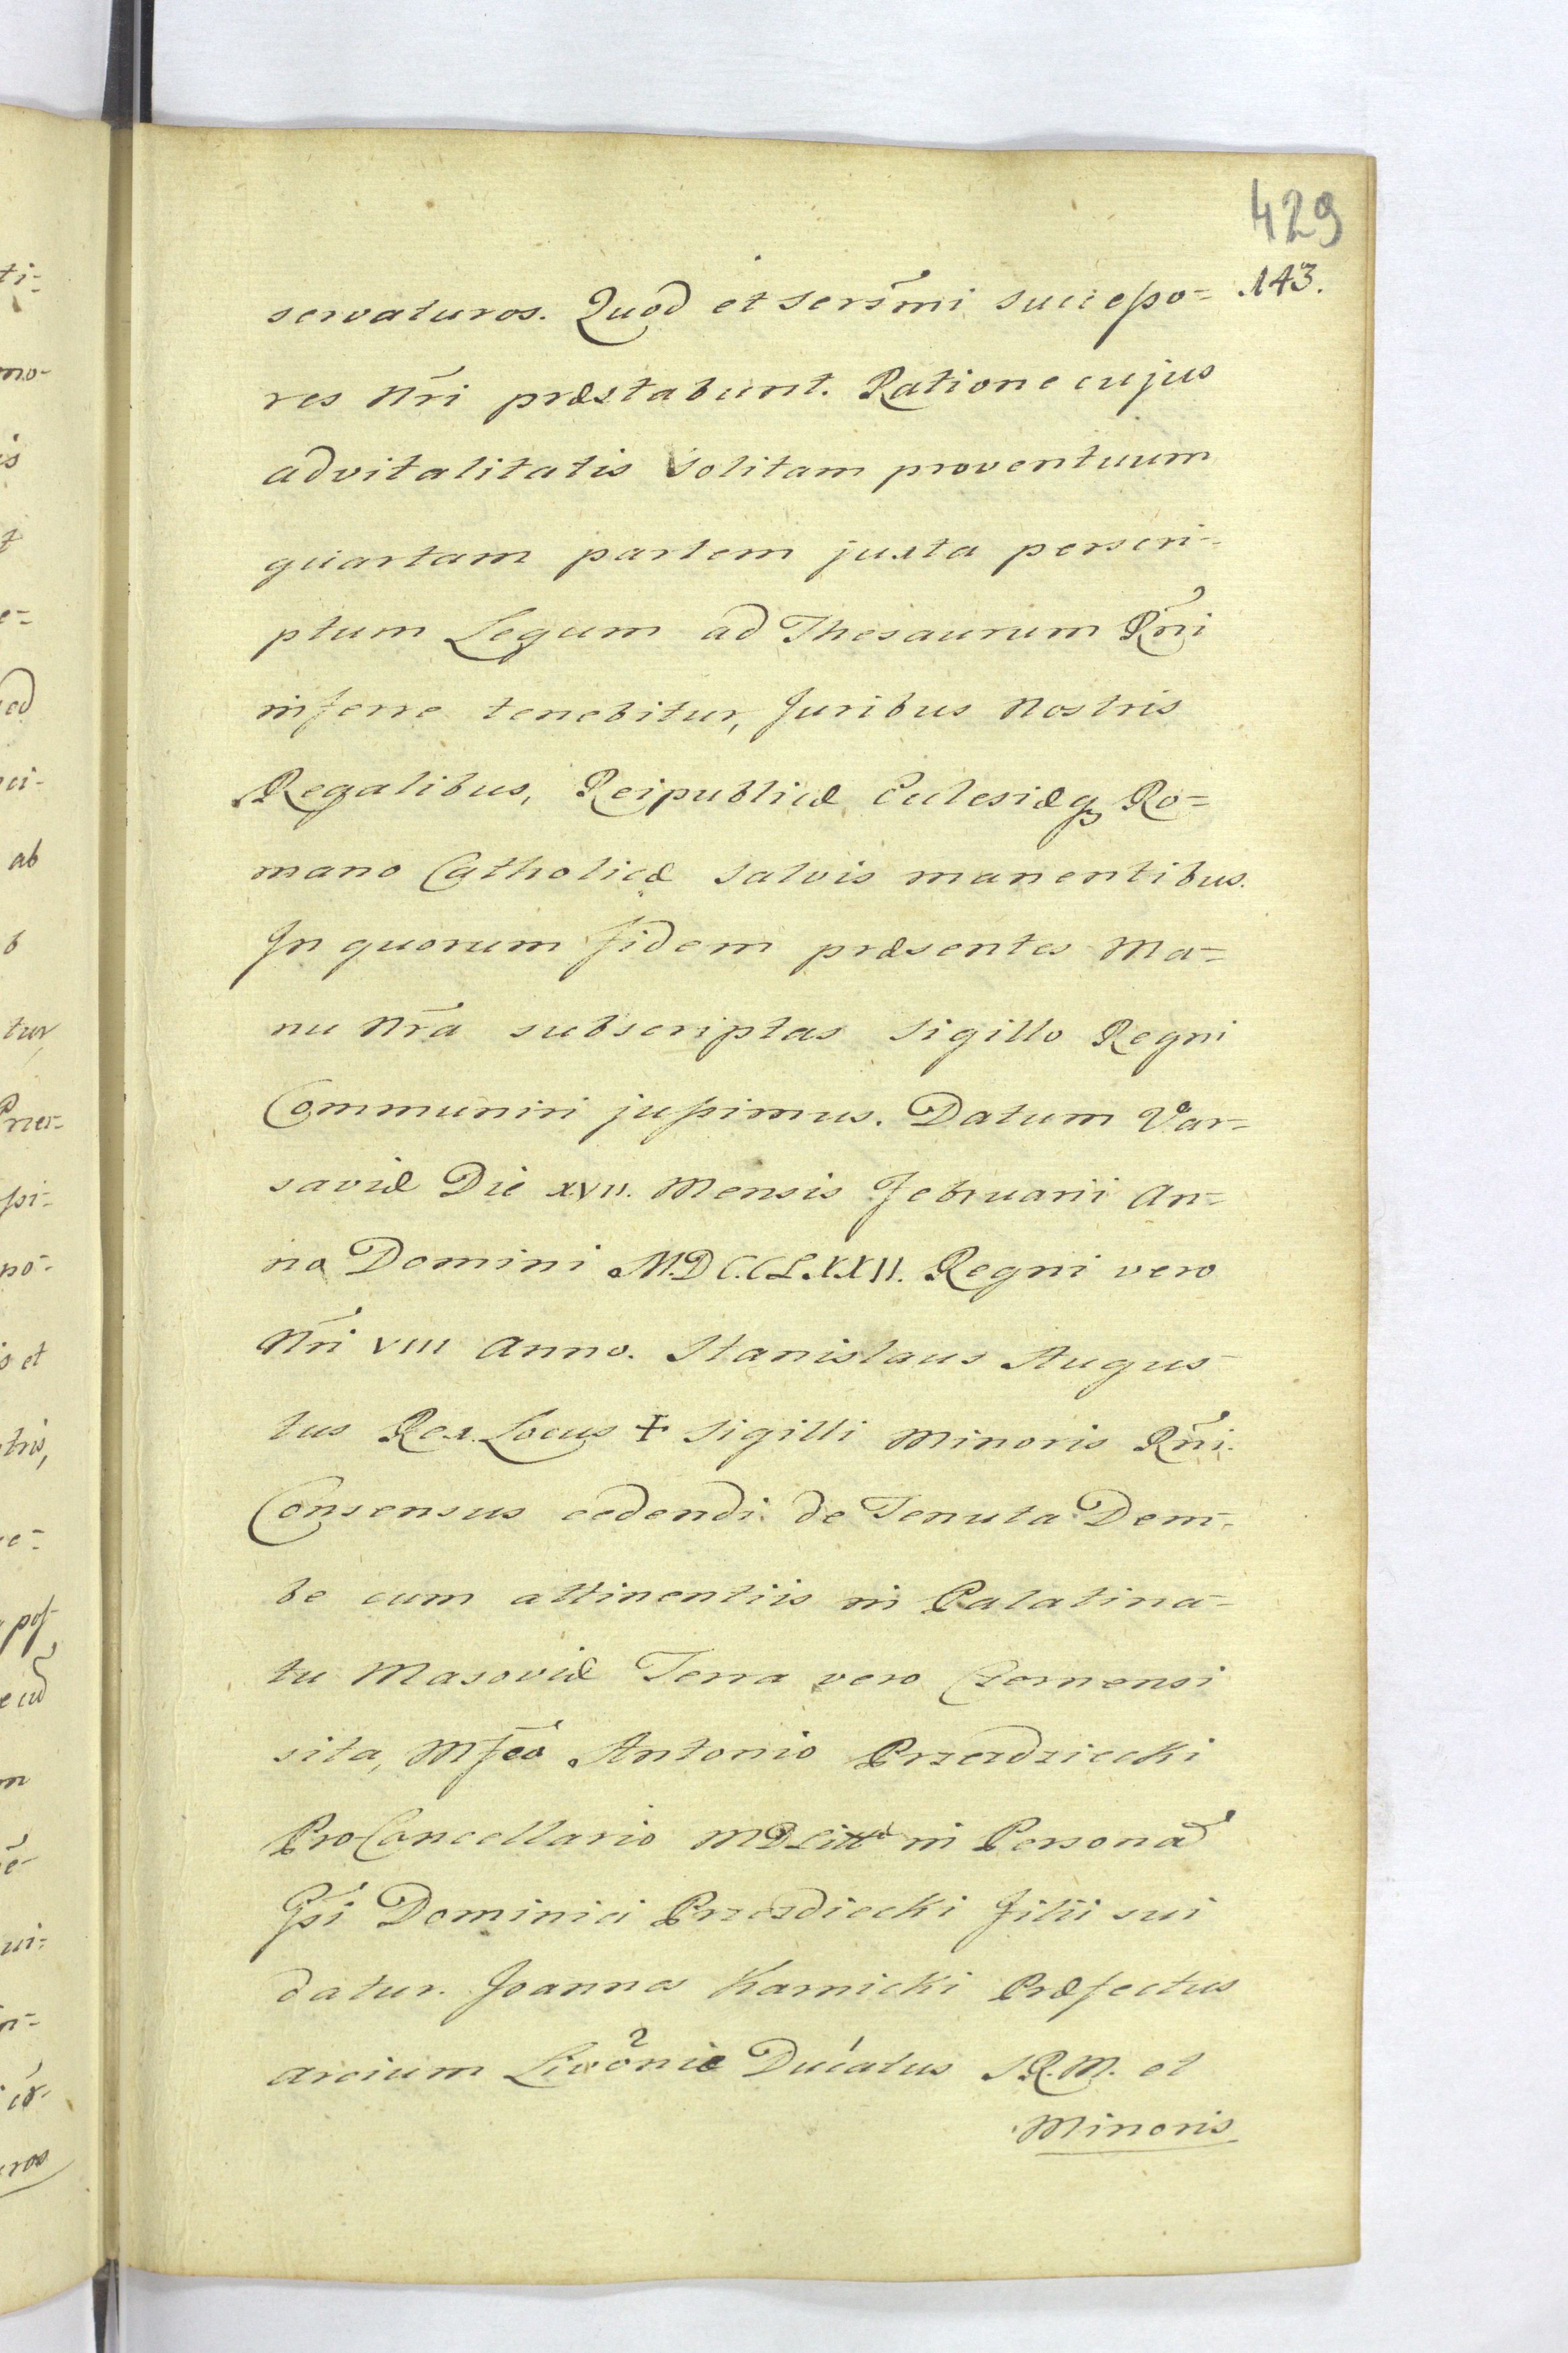 429
143.
servaturos. Quod et sers̃mi successo=
res Nr̃i præstabunt. Ratione cujus
advitalitatis solitam proventuum
quartam partem juxta perscri-
ptum Legum ad Thesaurum Rñi
inferre tenebitur, Juribus Nostris
Regalibus, Reipublicæ Eclesiæq₃ Ro=
mano Catholicæ salvis manentibus.
In quorum fidem præsentes Ma=
nu Nr̃a subscriptas Sigillo Regni
Communiri jussimus. Datum Var=
saviæ Die XVII. Mensis Februarii An=
no Domini M.DCCLXXII. Regni vero
Nr̃i VIII Anno. Stanislaus Augus
tus Rex. Locus ✝ Sigilli Minoris Rñi.
Consensus cedendi de Tenuta Dem-
be cum attinentiis in Palatina=
tu Masoviæ Terra vero Czernensi
sita, Mfco Antonio Przezdziecki
ProCancellario MDLittæ in Personã
Gsi Dominici Przezdiecki Filii sui
datur. Joannes Karnicki Præfectus
arcium Livõniæ Ducatus S.R.M. et
Minoris
ti=
mo-
is
t
e=
ed
ci-
ab
b
tur
Prer-
ssi-
no-
s et
tris,
ve=
pos
m
ui=
n-
ros